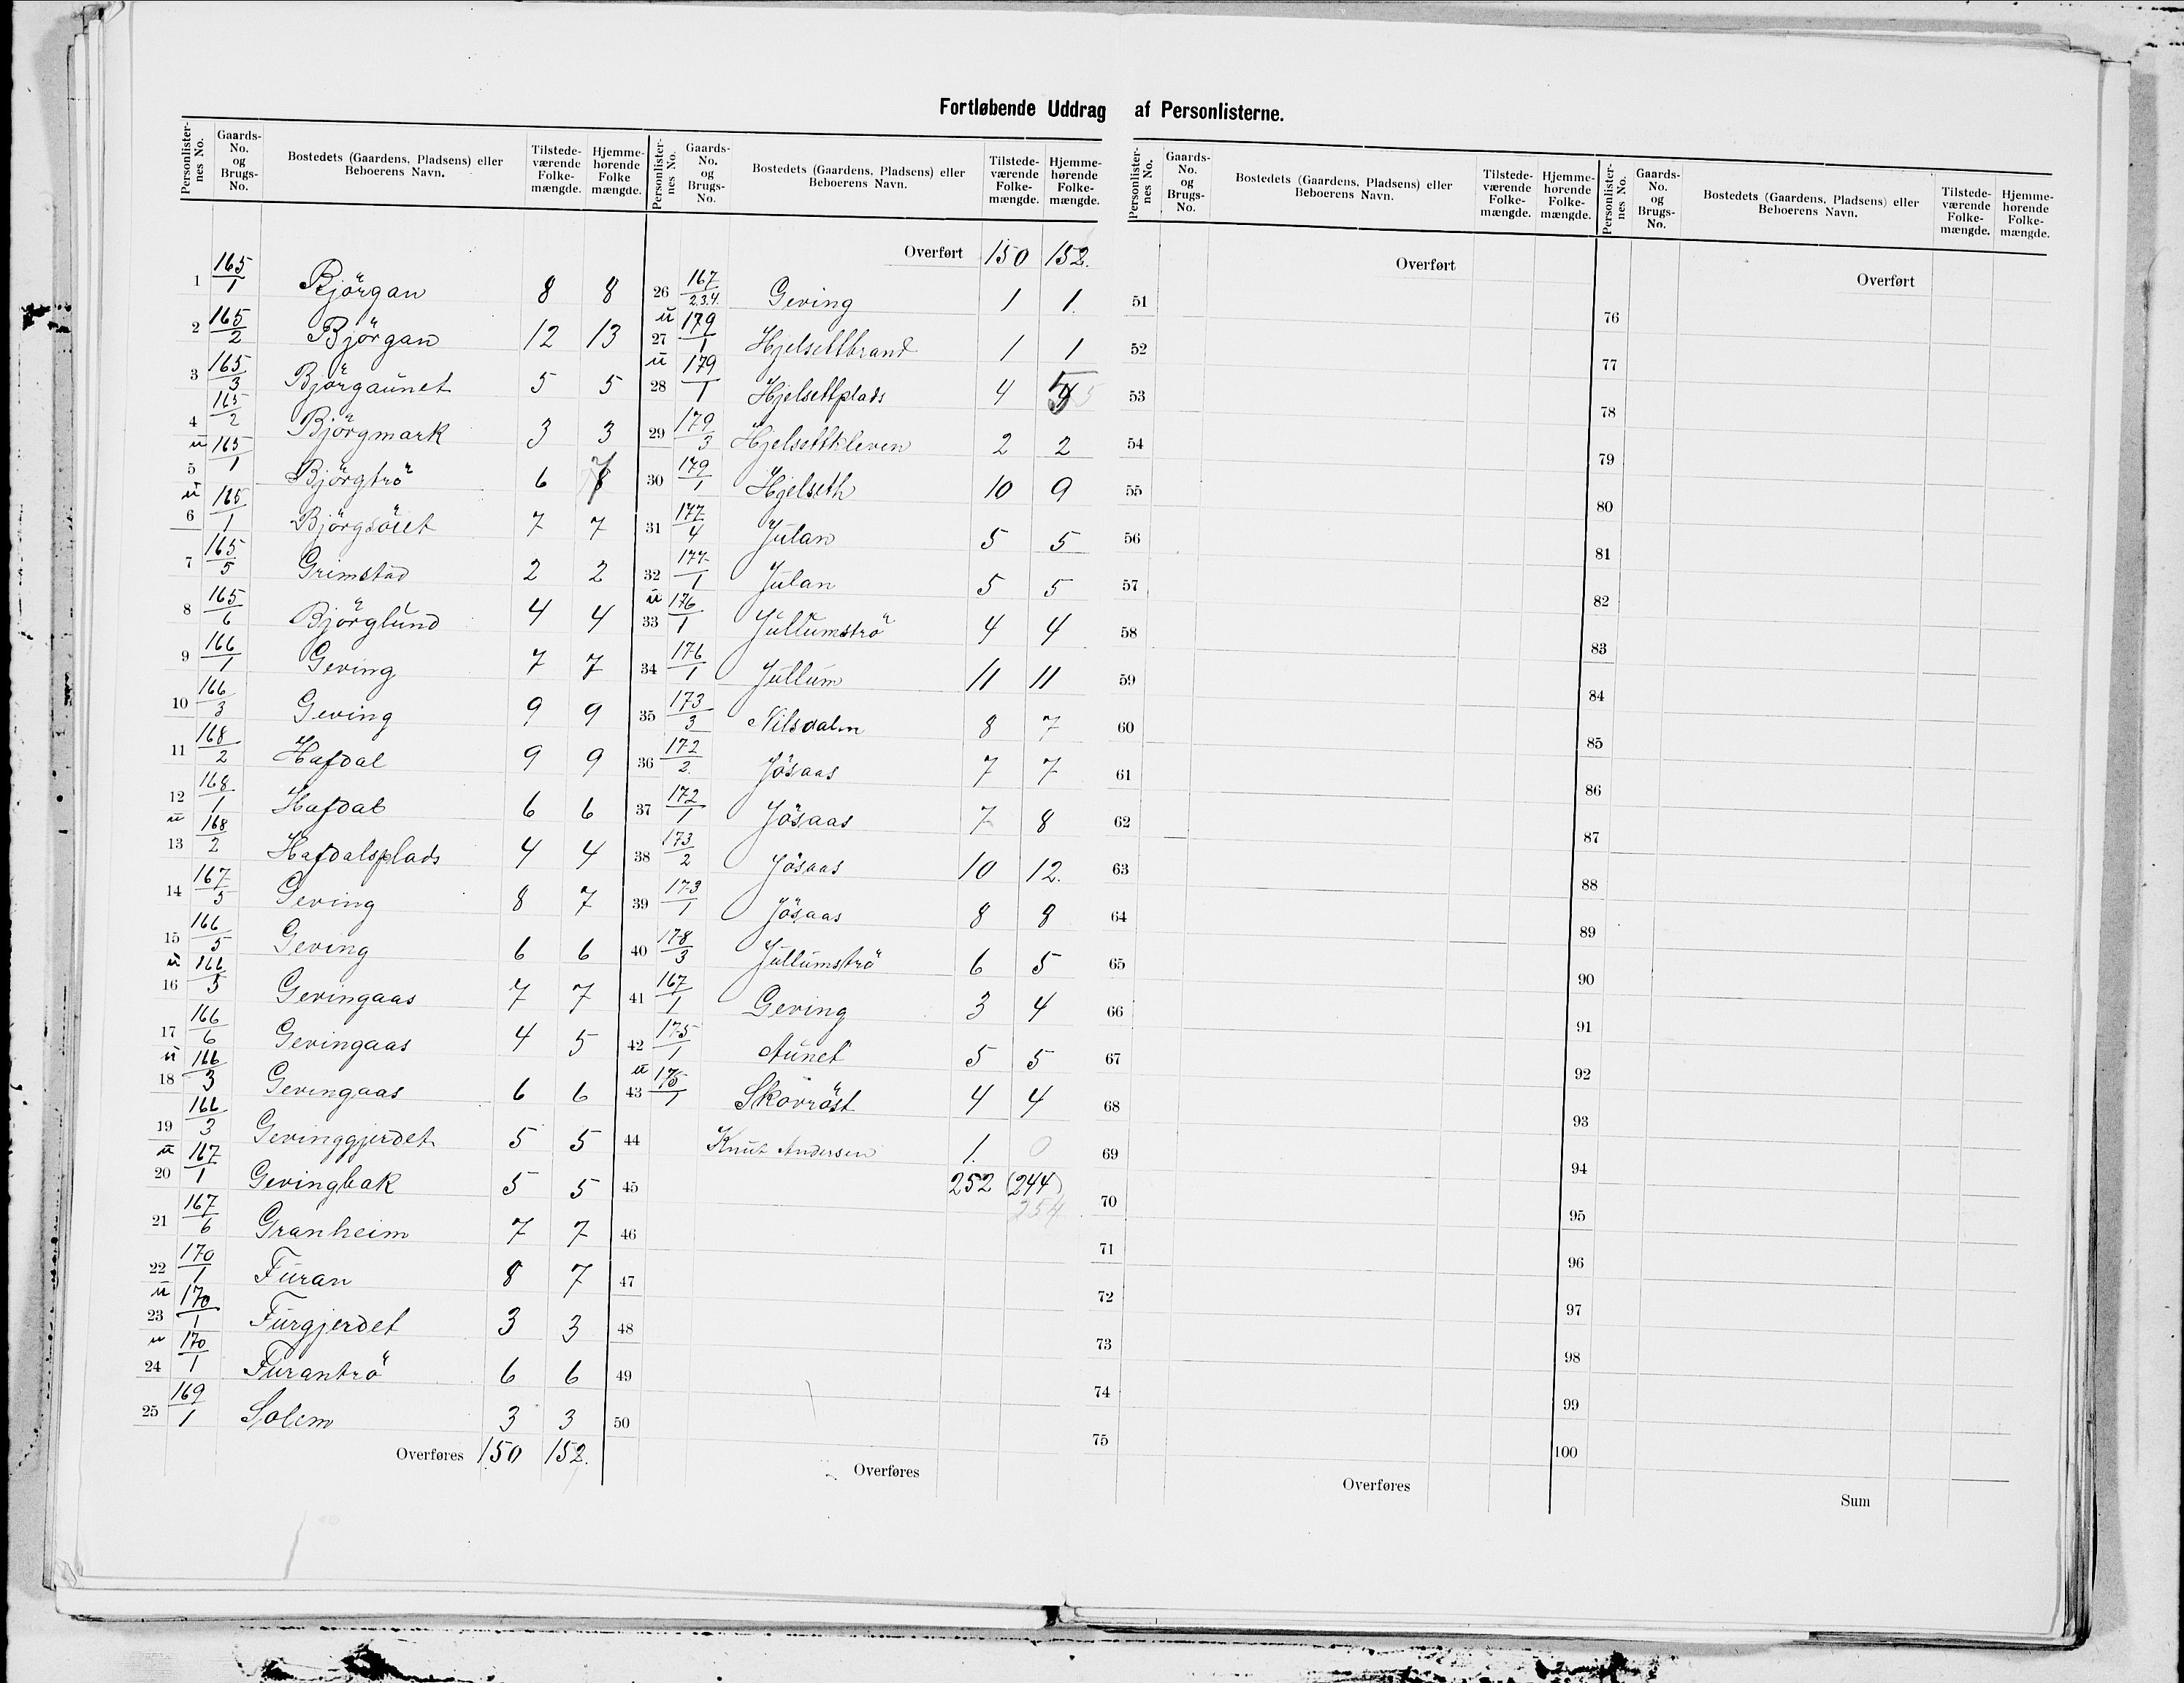 Fortløbende Uddrag af Personlisterne.
Personlisternes No. | Gaards-No. og Brugs-No. | Bostedets (Gaardens, Pladsens) eller Beboerens Navn. | Tilstedeværende Folkemængde. | Hjemmehørende Folkemængde.
1 165/1 Björgan 8 8
2 165/2 Björgan 12 13
3 165/3 Björgaunet 5 5
4 165/2 Björgmark 3 3
5 u 165/1 Björgtrö 6 7
6 u 165/1 Björgsöiet 7 7
7 165/5 Grimstad 2 2
8 165/6 Björglund 4 4
9 166/1 Geving 7 7
10 166/3 Geving 9 9
11 168/2 Hafdal 9 9
12 168/1 Hafdal 6 6
13 u 168/2 Hafdalsplads 4 4
14 167/5 Geving 8 7
15 166/5 Geving 6 6
16 u 166/5 Gevingaas 7 7
17 166/6 Gevingaas 4 5
18 u 166/3 Gevingaas 6 6
19 166/3 Gevinggjerdet 5 5
20 u 167/1 Gevingbak 5 5
21 167/6 Granheim 7 7
22 170/1 Furan 8 7
23 u 170/1 Furgjerdet 3 3
24 u 170/1 Furantrö 6 6
25 169/1 Solem 3 3
Overføres 150 152.
Personlisternes No. | Gaards-No. og Brugs-No. | Bostedets (Gaardens, Pladsens) eller Beboerens Navn. | Tilstedeværende Folkemængde. | Hjemmehørende Folkemængde.
Overført 150 152.
26 167/2.3.4. Geving 1 1.
27 u 179/1 Hjelsettbrand 1 1
28 u 179/1 Hjelsettplads 4 5
29 179/3 Hjelsettkleven 2 2
30 179/1 Hjelseth 10 9
31 177/4 Julan 5 5
32 177/1 Julan 5 5
33 u 176/1 Jullumströ 4 4
34 176/1 Jullum 11 11
35 173/3 Nilsdalen 8 7
36 172/2. Jösaas 7 7
37 172/1 Jösaas 7 8
38 173/2 Jösaas 10 12.
39 173/1 Jösaas 8 8
40 178/3 Jullumströ 6 5
41 167/1 Geving 3 4
42 175/1 Aunet 5 5
43 u 175/1 Skovröst 4 4
44 Knut Andersen 1. 0
45 252 (244)
254
46
47
48
49
50
Overføres
Personlisternes No. | Gaards-No. og Brugs-No. | Bostedets (Gaardens, Pladsens) eller Beboerens Navn. | Tilstedeværende Folkemængde. | Hjemmehørende Folkemængde.
Overført
51
52
53
54
55
56
57
58
59
60
61
62
63
64
65
66
67
68
69
70
71
72
73
74
75
Overføres
Personlisternes No. | Gaards-No. og Brugs-No. | Bostedets (Gaardens, Pladsens) eller Beboerens Navn. | Tilstedeværende Folkemængde. | Hjemmehørende Folkemængde.
Overført
76
77
78
79
80
81
82
83
84
85
86
87
88
89
90
91
92
93
94
95
96
97
98
99
100
Sum